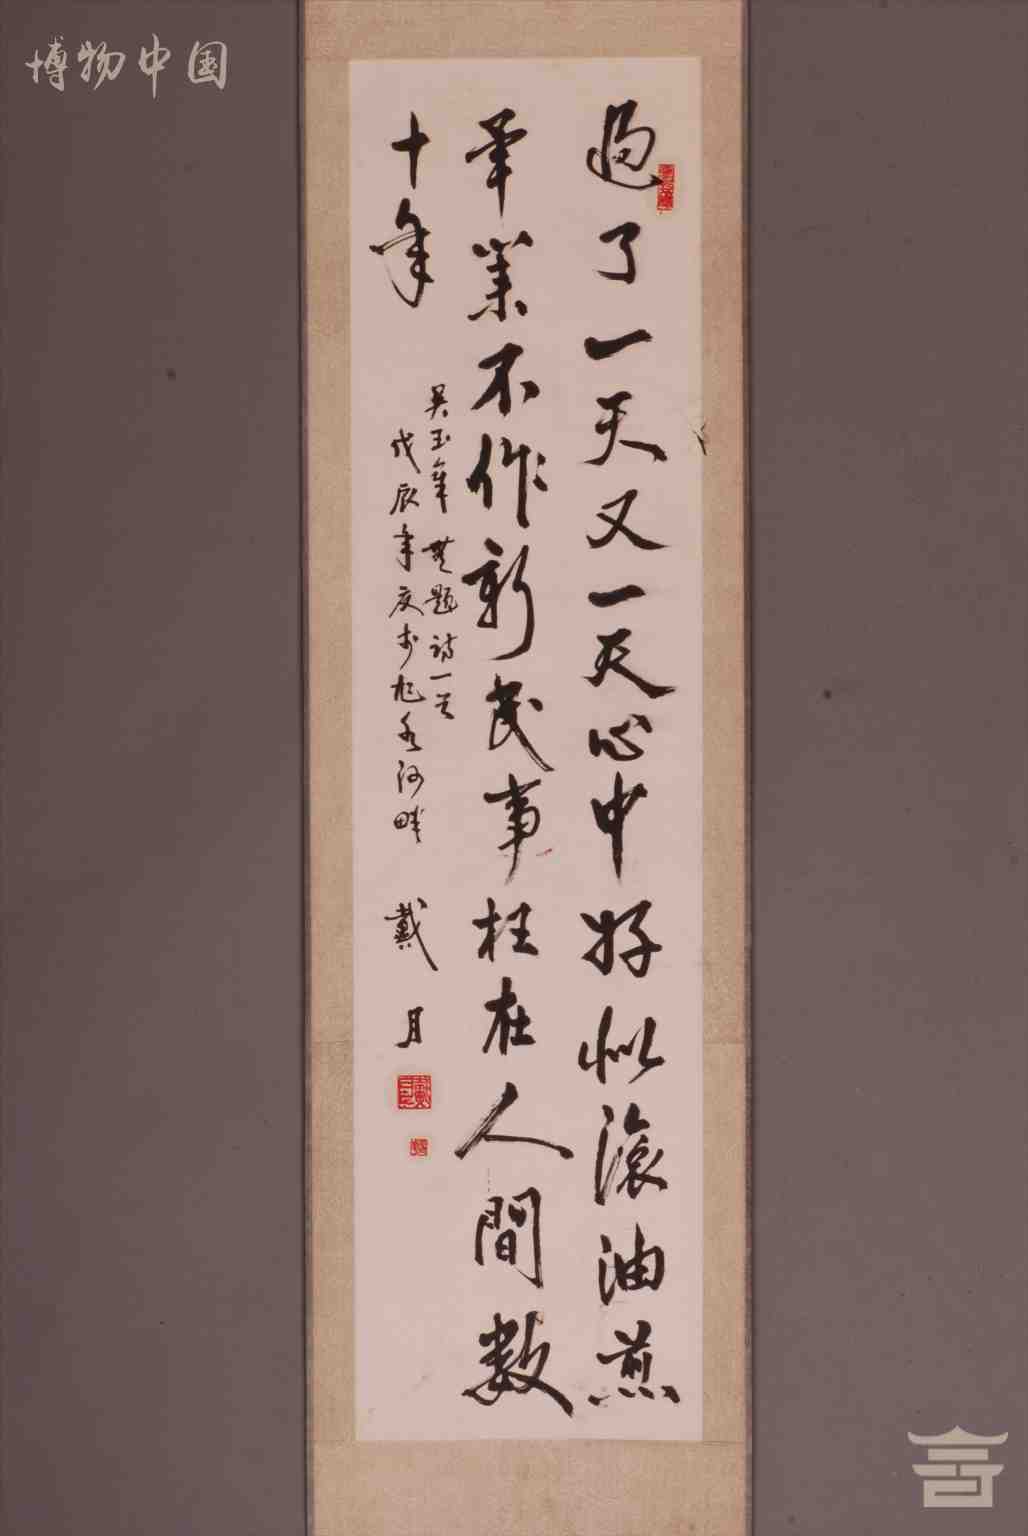 博物中国
過了一天又一天心中好似滚油煎
笔業不作新民事枉在人間数
十年
吴玉章無题詩一首
戊辰年夏於旭水河畔
戴月